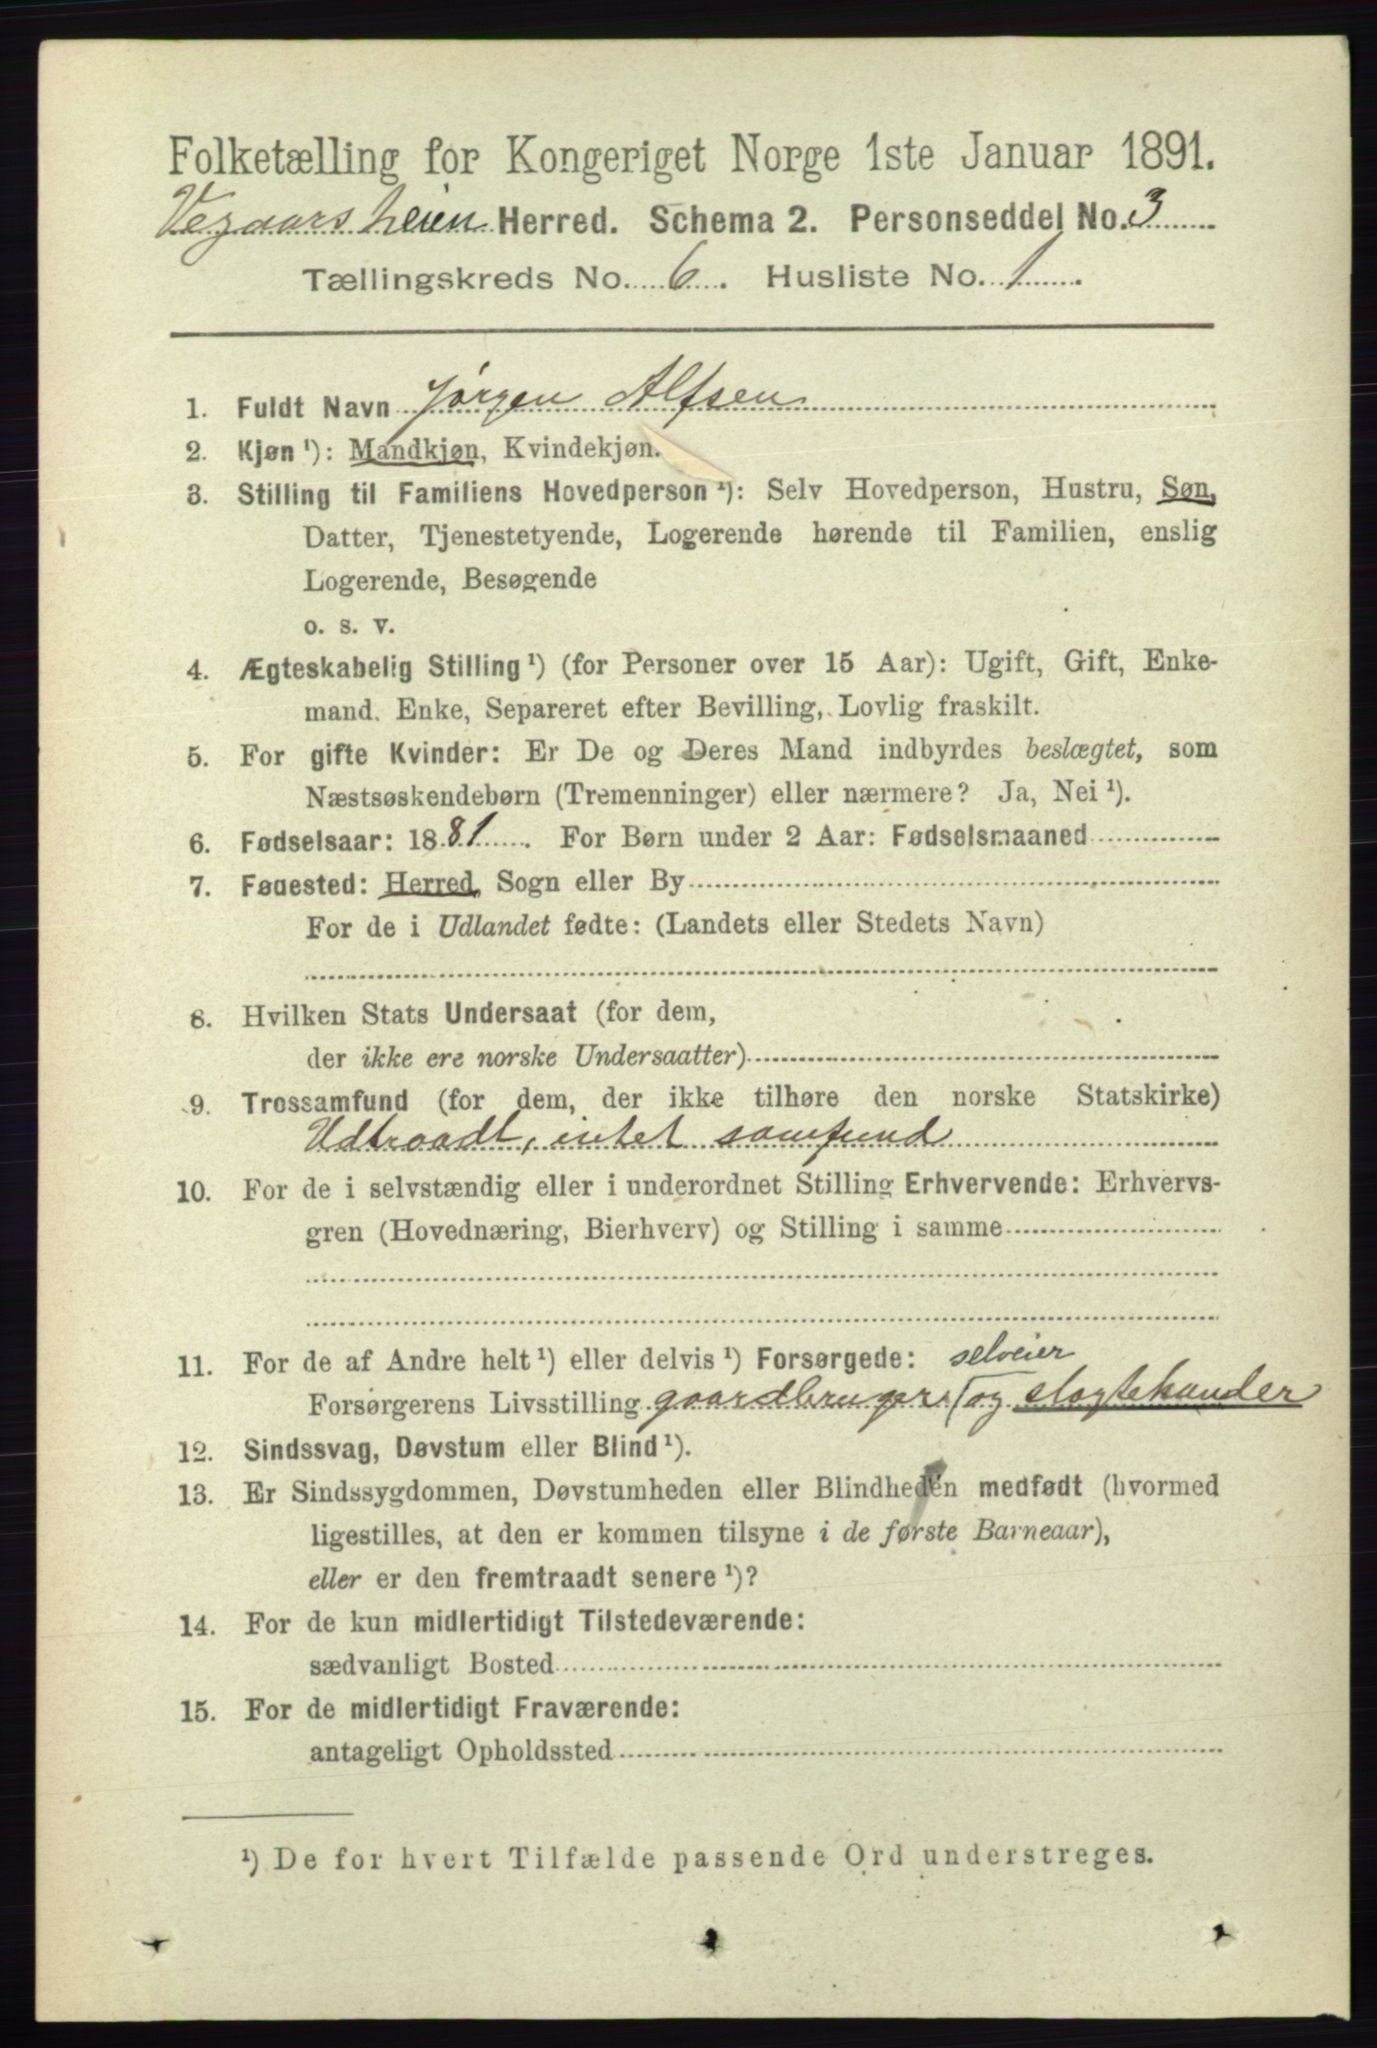 Folketælling for Kongeriget Norge 1ste Januar 1891.
Vegaarsheien Herred. Schema 2. Personseddel No. 3
Tællingskreds No. 6. Husliste No. 1.
1. Fuldt Navn Jörgen Alfsen
2. Kjøn ¹): Mandkjøn, Kvindekjøn.
3. Stilling til Familiens Hovedperson ¹): Selv Hovedperson, Hustru, Søn,
Datter, Tjenestetyende, Logerende hørende til Familien, enslig
Logerende, Besøgende
o. s. v.
4. Ægteskabelig Stilling ¹) (for Personer over 15 Aar): Ugift, Gift, Enke-
mand. Enke, Separeret efter Bevilling, Lovlig fraskilt.
5. For gifte Kvinder: Er De og Deres Mand indbyrdes beslægtet, som
Næstsøskendebørn (Tremenninger) eller nærmere? Ja, Nei ¹).
6. Fødselsaar: 1881. For Børn under 2 Aar: Fødselsmaaned
7. Føuested: Herred, Sogn eller By
For de i Udlandet fødte: (Landets eller Stedets Navn)
8. Hvilken Stats Undersaat (for dem,
der ikke ere norske Undersaatter)
9. Trossamfund (for dem, der ikke tilhøre den norske Statskirke)
Udtraadt, intet samfund
10. For de i selvstændig eller i underordnet Stilling Erhvervende: Erhvervs-
gren (Hovednæring, Bierhverv) og Stilling i samme
11. For de af Andre helt ¹) eller delvis ¹) Forsørgede: selveier
Forsørgerens Livsstilling gaardbruger og slagtehandler
12. Sindssvag, Døvstum eller Blind ¹).
13. Er Sindssygdommen, Døvstumheden eller Blindheden medfødt (hvormed
ligestilles, at den er kommen tilsyne i de første Barneaar),
eller er den fremtraadt senere ¹)?
14. For de kun midlertidigt Tilstedeværende:
sædvanligt Bosted
15. For de midlertidigt Fraværende:
antageligt Opholdssted
¹) De for hvert Tilfælde passende Ord understreges.